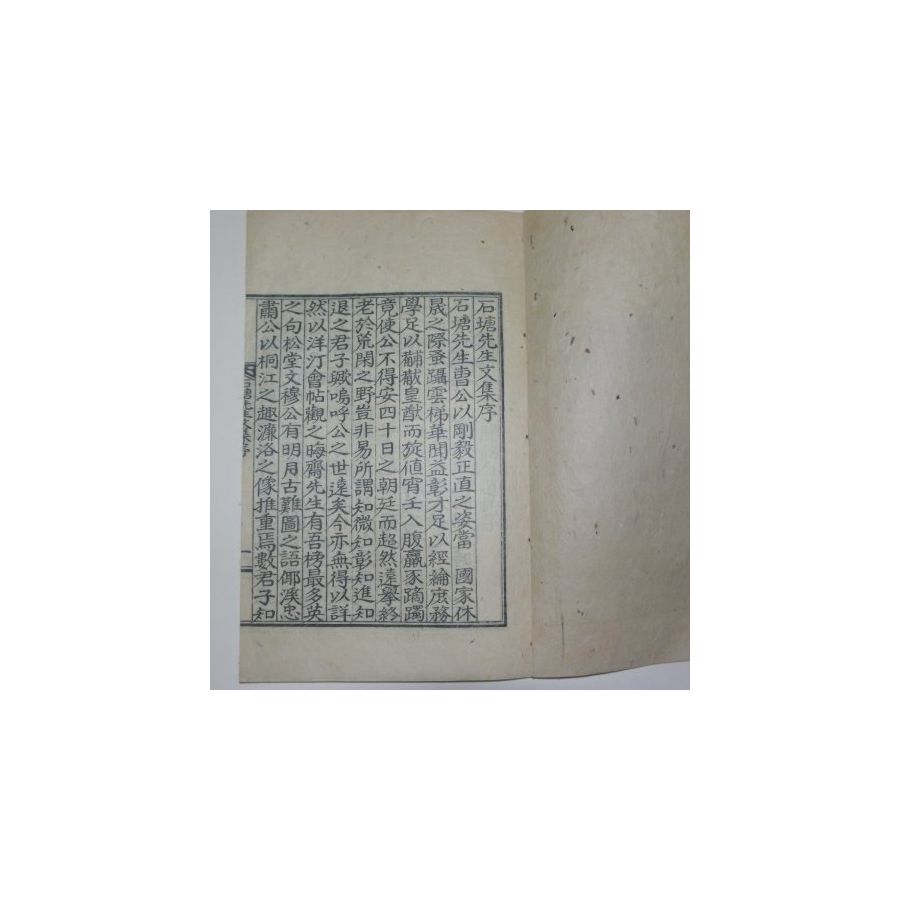 石塘先生文集序
石塘先生曺公以剛毅正直之姿當 國家休
晟之際蚤躡雲梯華聞益彰才足以經綸庶務
學足以黼黻皇猷而旋値宵壬入腹羸豕蹢躅
竟使公不得安四十日之朝廷而超然遠擧終
老於荒閑之野豈非易所謂知微知彰知進知
退之君子歟嗚呼公之世遠矣今亦無得以詳
然以洋汀會帖觀之晦齋先生有吾榜最多英
之句松堂文穆公有明月古難圖之語 溪忠
肅公以桐江之趣濂洛之像推重焉數君子知